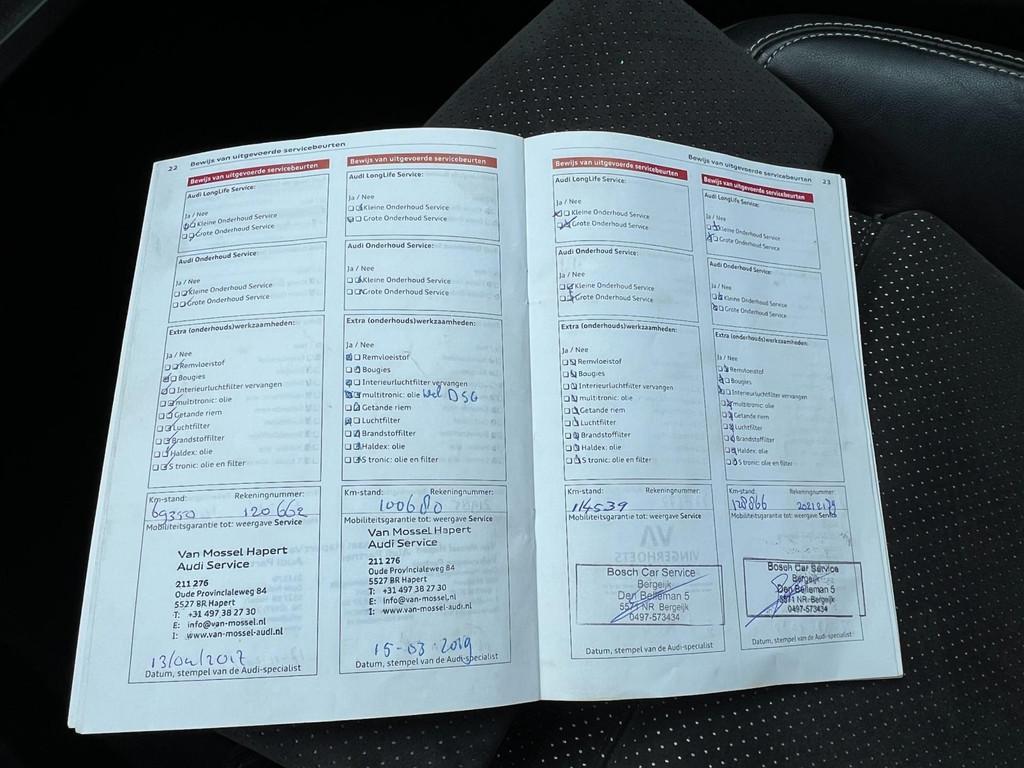 22 Bewijs van uitgevoerde servicebeurten
Bewijs van uitgevoerde servicebeurten
Audi LongLife Service:
Ja / Nee
Kleine Onderhoud Service
Grote Onderhoud Service
Audi Onderhoud Service:
Ja / Nee
Kleine Onderhoud Service
Grote Onderhoud Service
Extra (onderhouds)werkzaamheden:
Ja / Nee
Remvloeistof
Bougies
Interieurluchtfilter vervangen
multitronic: olie
Getande riem
Luchtfilter
Brandstoffilter
Haldex: olie
S tronic: olie en filter
Km-stand: Rekeningnummer:
69350 120 662
Mobiliteitsgarantie tot: weergave Service
Van Mossel Hapert
Audi Service
211 276
Oude Provincialeweg 84
5527 BR Hapert
T: +31 497 38 27 30
E: info@van-mossel.nl
I: www.van-mossel-audi.nl
13/04/2017
Datum, stempel van de Audi-specialist
Bewijs van uitgevoerde servicebeurten
Audi LongLife Service:
Ja / Nee
Kleine Onderhoud Service
Grote Onderhoud Service
Audi Onderhoud Service:
Ja / Nee
Kleine Onderhoud Service
Grote Onderhoud Service
Extra (onderhouds)werkzaamheden:
Ja / Nee
Remvloeistof
Bougies
Interieurluchtfilter vervangen
multitronic: olie wel DSG
Getande riem
Luchtfilter
Brandstoffilter
Haldex: olie
S tronic: olie en filter
Km-stand: Rekeningnummer:
100680
Mobiliteitsgarantie tot: weergave Service
Van Mossel Hapert
Audi Service
211 276
Oude Provincialeweg 84
5527 BR Hapert
T: +31 497 38 27 30
E: info@van-mossel.nl
I: www.van-mossel-audi.nl
15-03-2019
Datum, stempel van de Audi-specialist
Bewijs van uitgevoerde servicebeurten 23
Bewijs van uitgevoerde servicebeurten
Audi LongLife Service:
Ja / Nee
Kleine Onderhoud Service
Grote Onderhoud Service
Audi Onderhoud Service:
Ja / Nee
Kleine Onderhoud Service
Grote Onderhoud Service
Extra (onderhouds)werkzaamheden:
Ja / Nee
Remvloeistof
Bougies
Interieurluchtfilter vervangen
multitronic: olie
Getande riem
Luchtfilter
Brandstoffilter
Haldex: olie
S tronic: olie en filter
Km-stand: Rekeningnummer:
114539
Mobiliteitsgarantie tot: weergave Service
Bosch Car Service
Bergeijk
Den Belleman 5
5571 NR Bergeijk
0497-573434
Datum, stempel van de Audi-specialist
Bewijs van uitgevoerde servicebeurten
Audi LongLife Service:
Ja / Nee
Kleine Onderhoud Service
Grote Onderhoud Service
Audi Onderhoud Service:
Ja / Nee
Kleine Onderhoud Service
Grote Onderhoud Service
Extra (onderhouds)werkzaamheden:
Ja / Nee
Remvloeistof
Bougies
Interieurluchtfilter vervangen
multitronic: olie
Getande riem
Luchtfilter
Brandstoffilter
Haldex: olie
S tronic: olie en filter
Km-stand: Rekeningnummer:
128866
Mobiliteitsgarantie tot: weergave Service
Bosch Car Service
Bergeijk
Den Belleman 5
5571 NR Bergeijk
0497-573434
Datum, stempel van de Audi-specialist